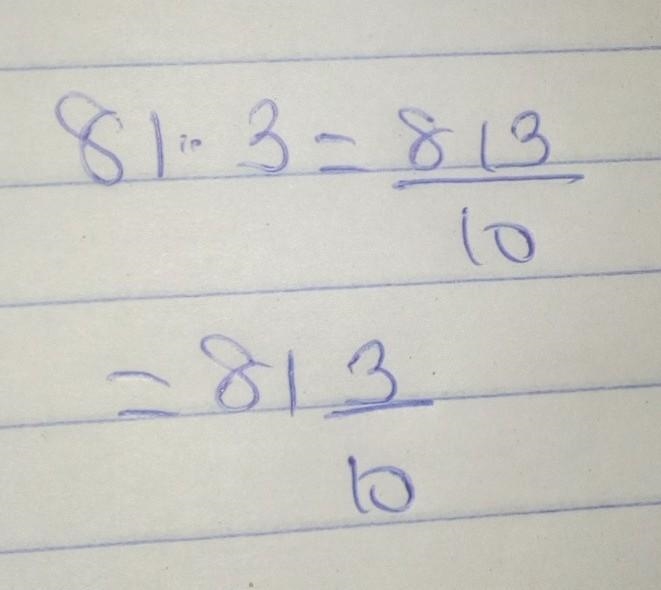 81.3 = 813/10
= 81 3/10